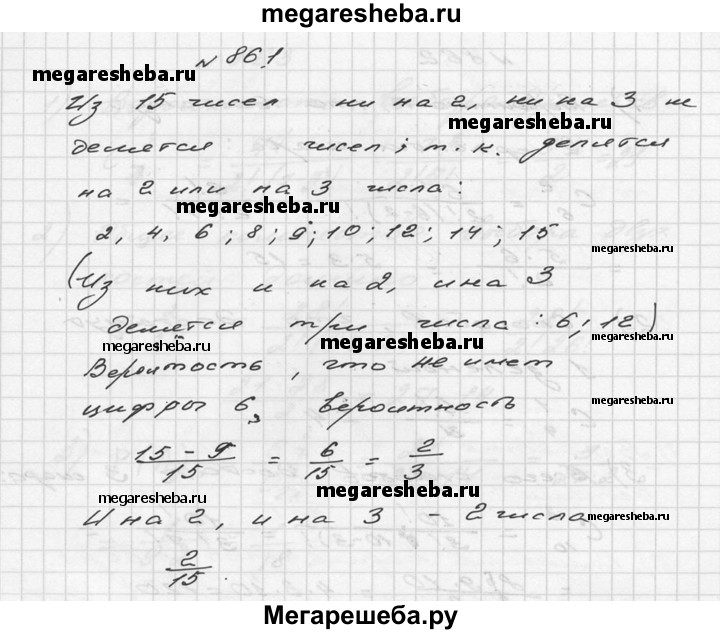 megaresheba.ru
№ 861
megaresheba.ru
Из 15 чисел ни на 2, ни на 3 не
megaresheba.ru
делятся чисел; т.к. делятся
на 2 или на 3 числа:
megaresheba.ru
2, 4, 6; 8; 9; 10; 12; 14; 15
megaresheba.ru
(Из них и на 2, и на 3
делятся три числа: 6; 12)
megaresheba.ru
megaresheba.ru
megaresheba.ru
Вероятность, что не имет
цифры 6, вероятность
megaresheba.ru
15 - 9 / 15 = 6/15 = 2/3
megaresheba.ru
megaresheba.ru
И на 2, и на 3 - 2 числа
megaresheba.ru
2/15.
Мегарешеба.ру